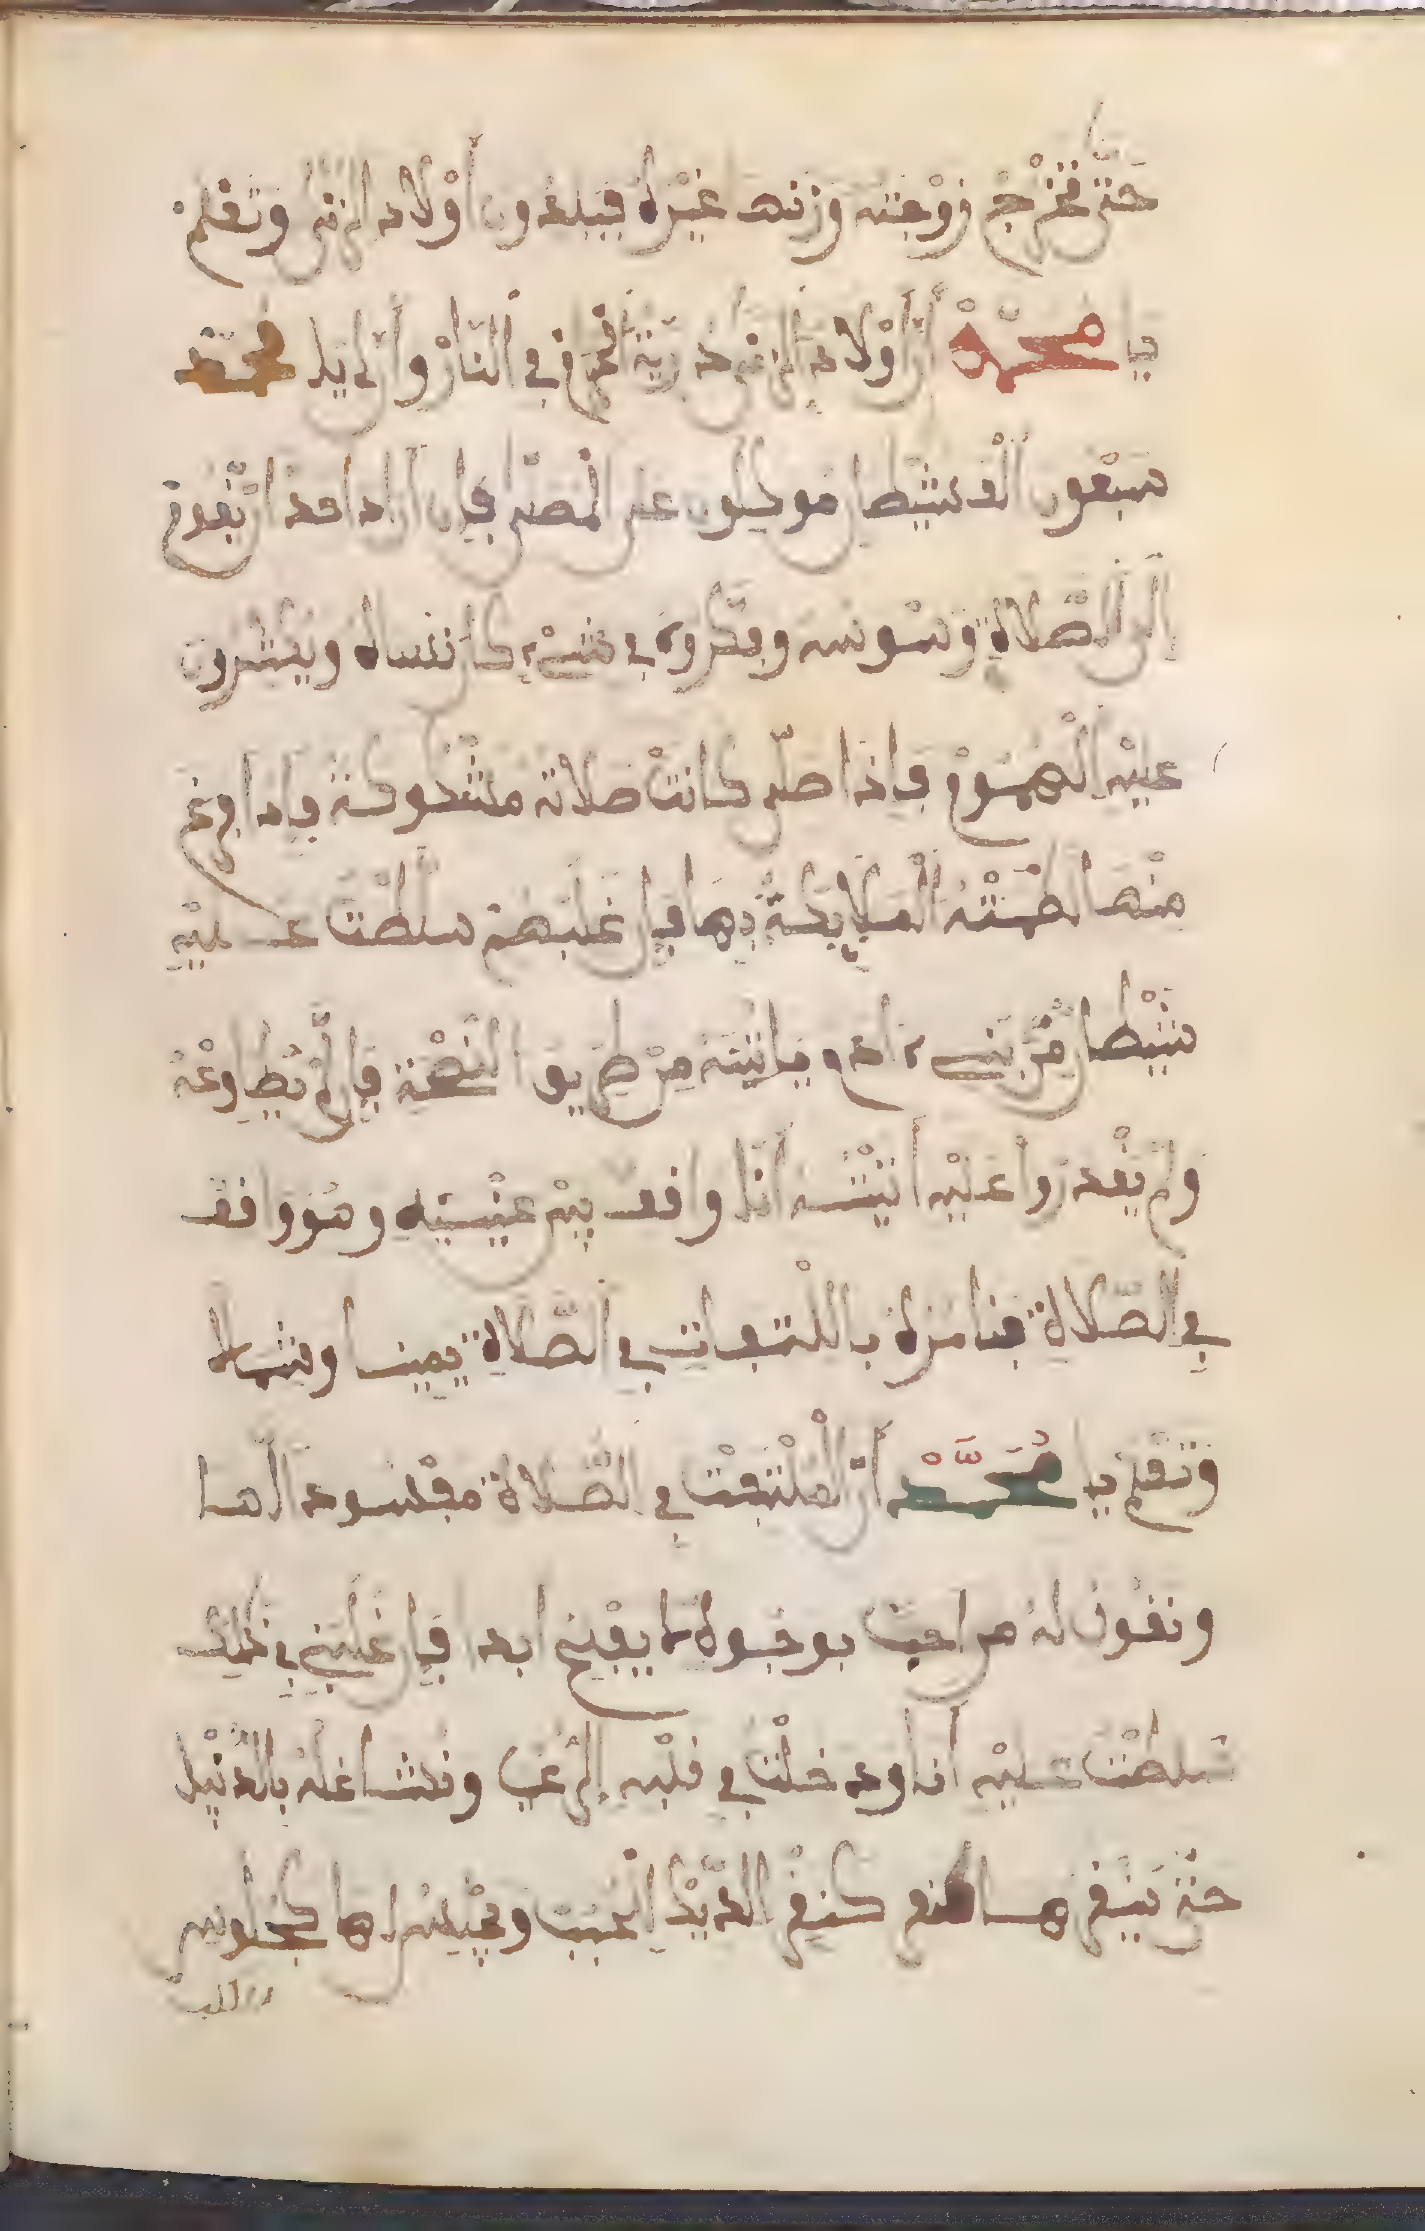 حَتَّى تَخْرُجْ زَوْجَتُه وَزِنَها غَيْرُهُ فَيَلِدُونَ أَوْلَادَ الزِّنَى وَتَعْلَمْ
يا مُحَمَّدْ أَنَّ أَوْلَادَ الزِّنَى ذُرِّيَّةُ أَخْرَى فِي النَّارْ وَأَنَّ لِي يَا مُحَمَّد
سَبْعُونَ أَلْف شَيْطَان مُوكلون على الْمُصَلِّي فَإِن أَرَادَ أَحَدًا أَنْ يَقُومْ
إِلَى الصَّلَاةِ وَسْوَسَه وَفَكَّرُوهُ فِي شَيْءٍ كَانَ نَسَاهُ وَيَكْثُرُونَ
عَلَيْهِ الْهُمُومْ فَإِذَا صَلَّى كَانَتْ صَلَاتُه مَشْكُوكَة فَإِذَا فَرَغ
مِنْهَا لَطَمَتْهُ الْمَلَائِكَةُ بِهَا فَإِن غَلَبَهُمْ سَلَطْتُ عَلَيْهِ
شَيْطَان مِنْ بَنِي ءَادَم يَأْتِيَهُ مِنْ طَرِيقِ النَّصْحَةِ فَإِن لَّمْ يُطَاوِعْهُ
وَلَمْ يَقْدِرُوا عَلَيْهِ أَتَيْتُه أَنَا وَاقف بَيْنَ عَيْنَيْهِ وَهُوَ وَاقِف
فِي الصَّلَاةِ فَنَامُرُهُ بِالْلتفات فِي الصَّلَاةِ يَمِينًا وَشِمَالا
وَتَعْلَمْ يا مُحَمَّد أَنَّ الْمُلْتَفِتْ فِي الصَّلَاةِ مَفْسُودَة
وَنَقُولُ لَهُ بِوَجُوهٍ لا يُفْلِحُ أَبَدا فَإِن غَلَبَنِي فِي ذَلِك
سَلَطْتُ عَلَيْهِ أَنَا وَدَخَلْتُ فِي قَلْبِهِ الرُّعْبَ وَنَشَاغِلُهُ بِالدُّنْيَا
حَتَّى يَنْقُرَهَا كَنَقْرِ الدِّيكِ الْحَبَّ وَيَجْلِسُ لَهَا كَجُلُوسِ
الكلب